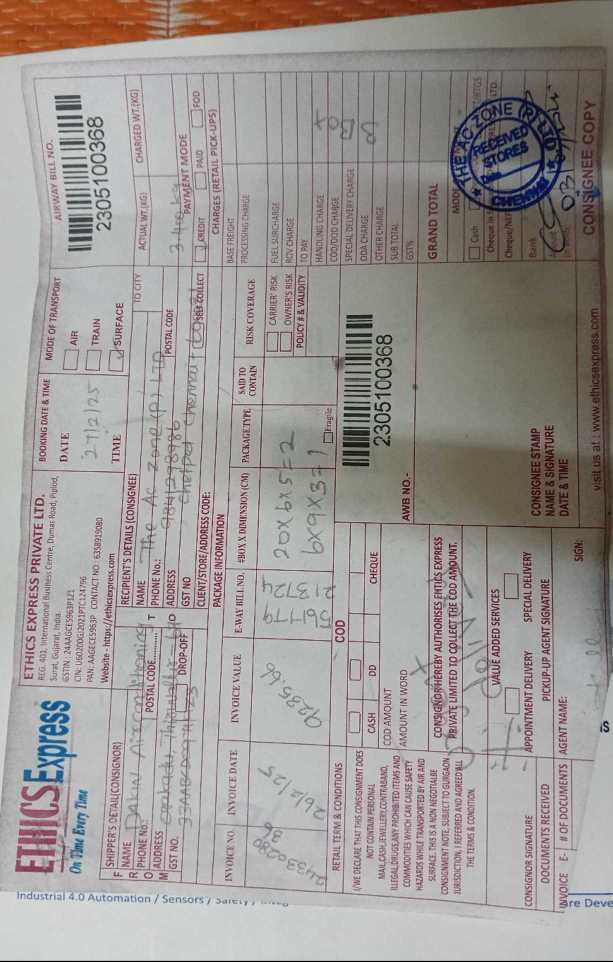 ETHICS Express
On Time Every Time
ETHICS EXPRESS PRIVATE LTD.
REG. 401, International Business Centre, Dumas Road, Piplod,
Surat, Gujarat, India.
GSTIN : 24AAGCE5963P1Z1
CIN: U60200GJ2021PTC124796
PAN: AAGECE5963P CONTACT NO.: 6358919080
Website - https://ethicsexpress.com
BOOKING DATE & TIME
DATE
27/2/25
TIME
MODE OF TRANSPORT
AIR
TRAIN
SURFACE
AIRWAY BILL NO.
2305100368
SHIPPER'S DETAIL(CONSIGNOR)
F NAME DAIKIN Airconditioning
R PHONE No.:
O ADDRESS
M GST NO
POSTAL CODE
DROP-OFF
RECIPIENT'S DETAILS (CONSIGNEE)
T
O
NAME The Ac Zone (P) LTD
PHONE No.: 9841298986
ADDRESS chetpet chennai
GST NO
CLIENT/STORE/ADDRESS CODE:
TO CITY
POSTAL CODE
SELF COLLECT
ACTUAL WT.(KG)
CHARGED WT.(KG)
PAYMENT MODE
CREDIT
PAID
FOD
PACKAGE INFORMATION
CHARGES (RETAIL PICK-UPS)
INVOICE NO.
INVOICE DATE
INVOICE VALUE
E-WAY BILL NO.
#BOX X DIMENSION (CM)
PACKAGE TYPE
SAID TO CONTAIN
RISK COVERAGE
26/2/25
9285.66
56179
213724
20x6x5=2
6x9x3=1
Fragile
CARRIER' RISK
OWNER'S RISK
POLICY # & VALIDITY
BASE FREIGHT
PROCESSING CHARGE
FUEL SURCHARGE
ROV CHARGE
TO PAY
HANDLING CHARGE
COD/DOD CHARGE
SPECIAL DELIVERY CHARGE
ODA CHARGE
OTHER CHARGE
SUB TOTAL
GST%
GRAND TOTAL
3 Box
RETAIL TERM & CONDITIONS
I/WE DECLARE THAT THIS CONSIGNMENT DOES
NOT CONTAIN PERSONAL
MAIL,CASH,JEWELLERY,CONTRABAND,
ILLEGAL,DRUGS,ANY PROHIBITED ITEMS AND
COMMODITIES WHICH CAN CAUSE SAFETY
HAZARDS WHILE TRANSPORTED BY AIR AND
SURFACE. THIS IS A NON NEGOTIALBE
CONSIGNMENT NOTE. SUBJECT TO GURGAON
JURISDICTION. I REFERED AND AGREED ALL
THE TERMS & CONDITION.
COD
CASH
DD
CHEQUE
COD AMOUNT
AMOUNT IN WORD
CONSIGNOR HEREBY AUTHORISES ENTIES EXPRESS
PRIVATE LIMITED TO COLLECT THE COD AMOUNT.
AWB NO.-
2305100368
VALUE ADDED SERVICES
APPOINTMENT DELIVERY
SPECIAL DELIVERY
CONSIGNOR SIGNATURE
PICKUP-UP AGENT SIGNATURE
DOCUMENTS RECEIVED
INVOICE
E-
# OF DOCUMENTS
AGENT NAME:
SIGN:
CONSIGNEE STAMP
NAME & SIGNATURE
DATE & TIME
MODE
Cash
Bank
THE AC ZONE (P) LTD.
RECEIVED
STORES
CHENNAI
visit us at : www.ethicsexpress.com
CONSIGNEE COPY
Industrial 4.0 Automation / Sensors / Safety /
are Deve